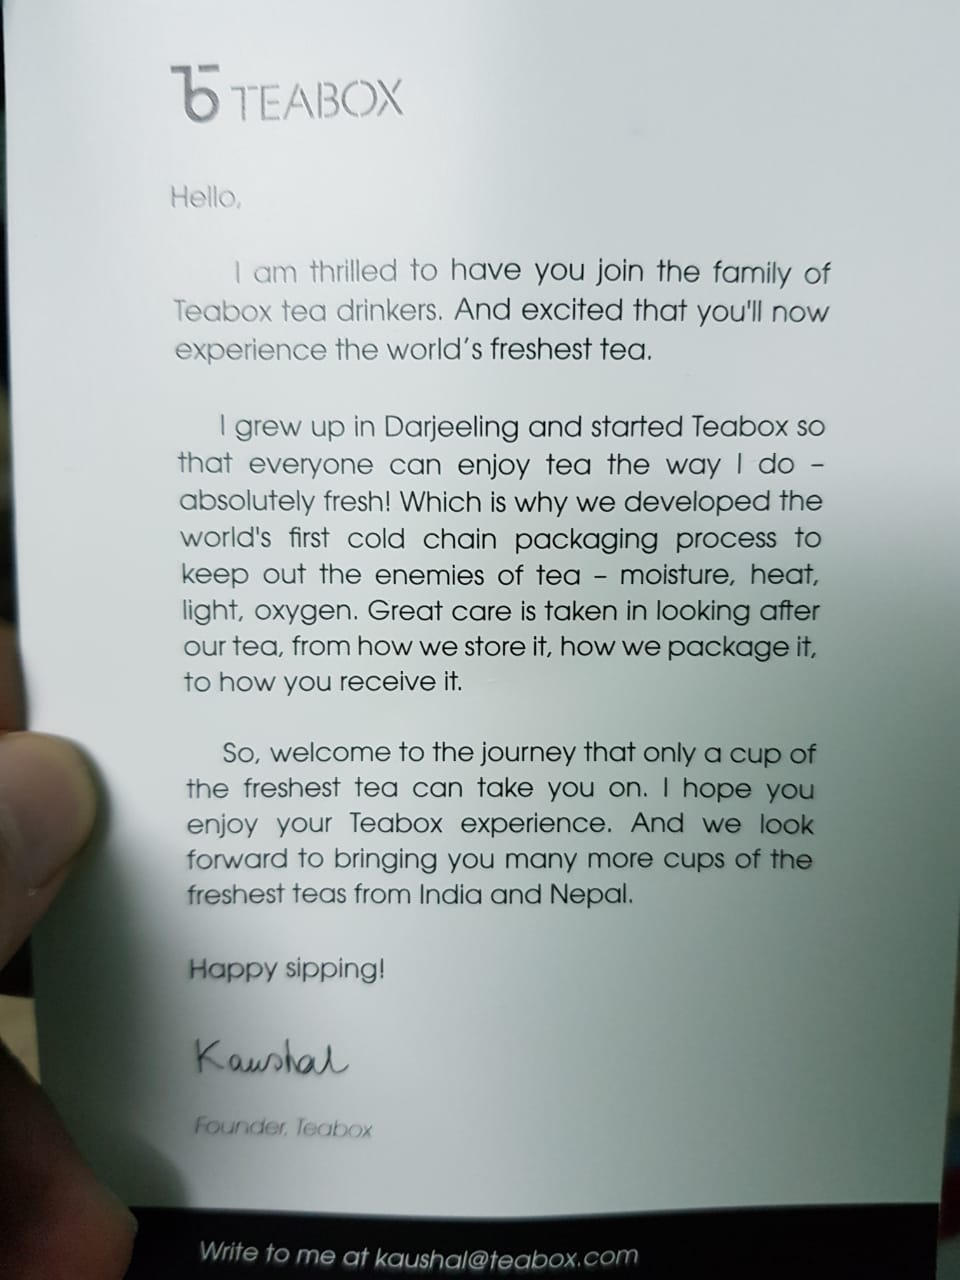 TEABOX
Hello,
I am thrilled to have you join the family of
Teabox tea drinkers. And excited that you'll now
experience the world's freshest tea.
I grew up in Darjeeling and started Teabox so
that everyone can enjoy tea the way I do –
absolutely fresh! Which is why we developed the
world's first cold chain packaging process to
keep out the enemies of tea – moisture, heat,
light, oxygen. Great care is taken in looking after
our tea, from how we store it, how we package it,
to how you receive it.
So, welcome to the journey that only a cup of
the freshest tea can take you on. I hope you
enjoy your Teabox experience. And we look
forward to bringing you many more cups of the
freshest teas from India and Nepal.
Happy sipping!
Kaushal
Founder, Teabox
Write to me at kaushal@teabox.com